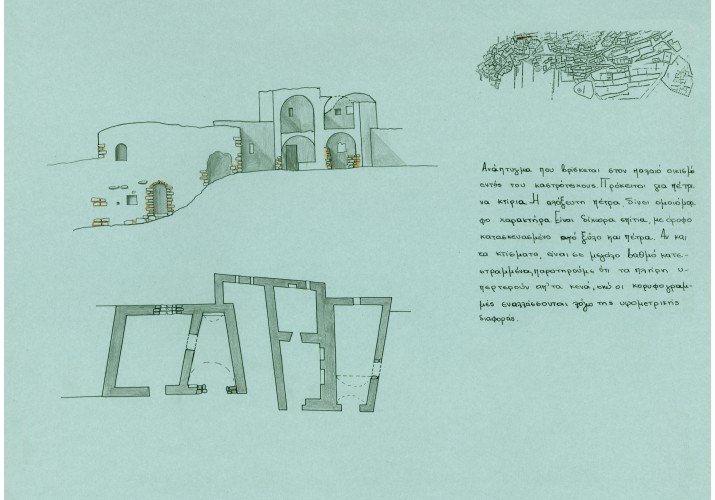 Ανάπτυγμα που βρίσκεται στον παλαιό οικισμό
εντός του καστρότειχους. Πρόκειται για πέτρι
να κτίρια. Η απόξεστη πέτρα δίνει ομοιόμορ
φο χαρακτήρα. Είναι δίχωρα σπίτια, με όροφο
κατασκευασμένο από ξύλο και πέτρα. Αν και
τα κτίσματα, είναι σε μεγάλο βαθμό κατε-
στραμμένα, παρατηρούμε ότι τα πλήρη υ-
περτερούν απ'τα κενά, ενώ οι κορυφογραμ-
μές εναλλάσσονται λόγω της υψομετρικής
διαφοράς.